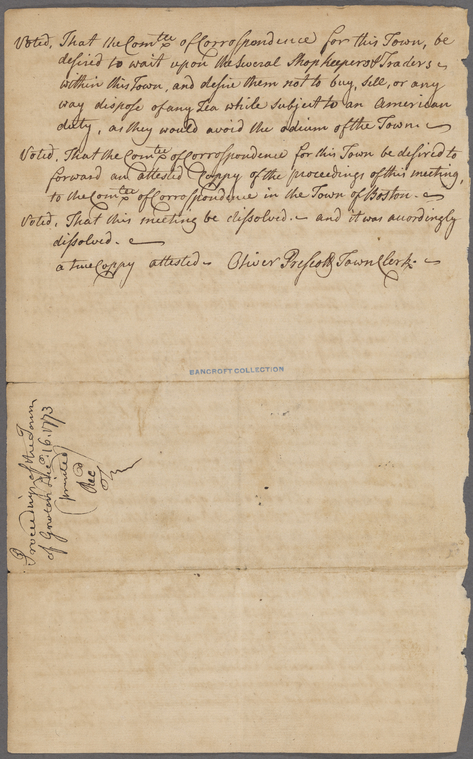 Voted, That the Com.tee of Correspondence for this Town, be
desired to wait upon the several Shopkeepers & Traders
within this Town, and desire them not to buy, sell, or any
way dispose of any Tea while subject to an American
duty, as they would avoid the odium of the Town.
Voted, That the Com.tee of Correspondence for this Town be desired to
forward an attested Coppy of the proceedings of this meeting,
to the Com.tee of Correspondence in the Town of Boston.
Voted, That this meeting be dissolved. and it was accordingly
dissolved.
a true Coppy attested. Oliver Prescott Town Clerk.
BANCROFT COLLECTION
Proceedings of the Town
of Groton Dec. 16. 1773
printed
Rec